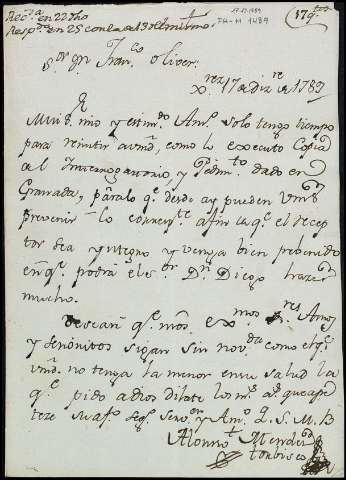 Recda en 22 dho
Respda en 25 con la de 13 del mismo
17 12 1789
FH-M 1489
Sor Dn Franco Oliver
Xrez 17 de Dizre de 1789
Mui Sr mio y estimdo Amo solo tengo tiempo
para remitir a vmd, como lo executo Copia
del Interrogatorio, y Pedimto dado en
Granada, para lo qe desde ay pueden Vms
prevenir lo conveniente a fin de qe el recep
tor sea yntegro y venga bien prebenido
en qe podrá el sor Dn Diego hazer
mucho.
Descaré qe mos Exmos Sres Amos
y señoritos sigan sin novdad como el qe
vmd no tenga la menor en su salud la
qe pido a dios dilate los ms as que ape
teze su afo segro servor y Amo Q. S. M. B
Alonso Mendez